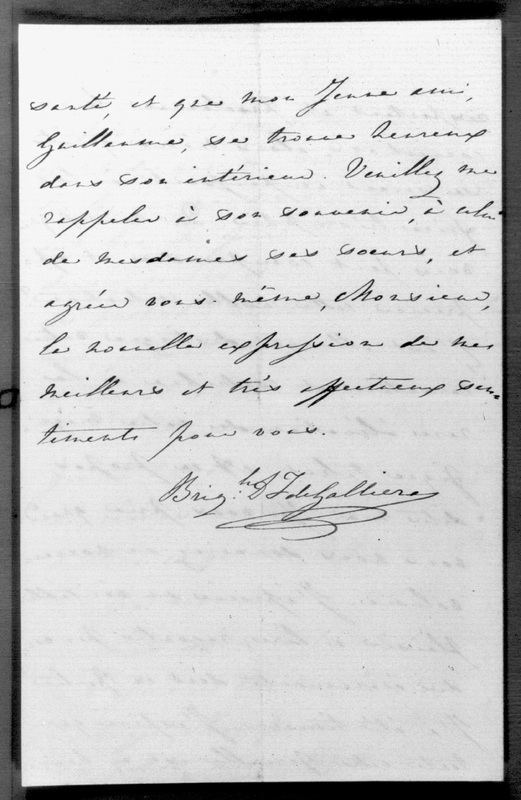 santé, et que mon Jeune ami,
Guillaume, se trouve heureux
dans son intérieur. Veuillez me
rappeler à son souvenir, à celui
de Mesdames ses sœurs, et
agréer vous même, Monsieur,
la nouvelle expression de mes
meilleurs et très affectueux sen-
timents pour vous.
Brig. de Galliera